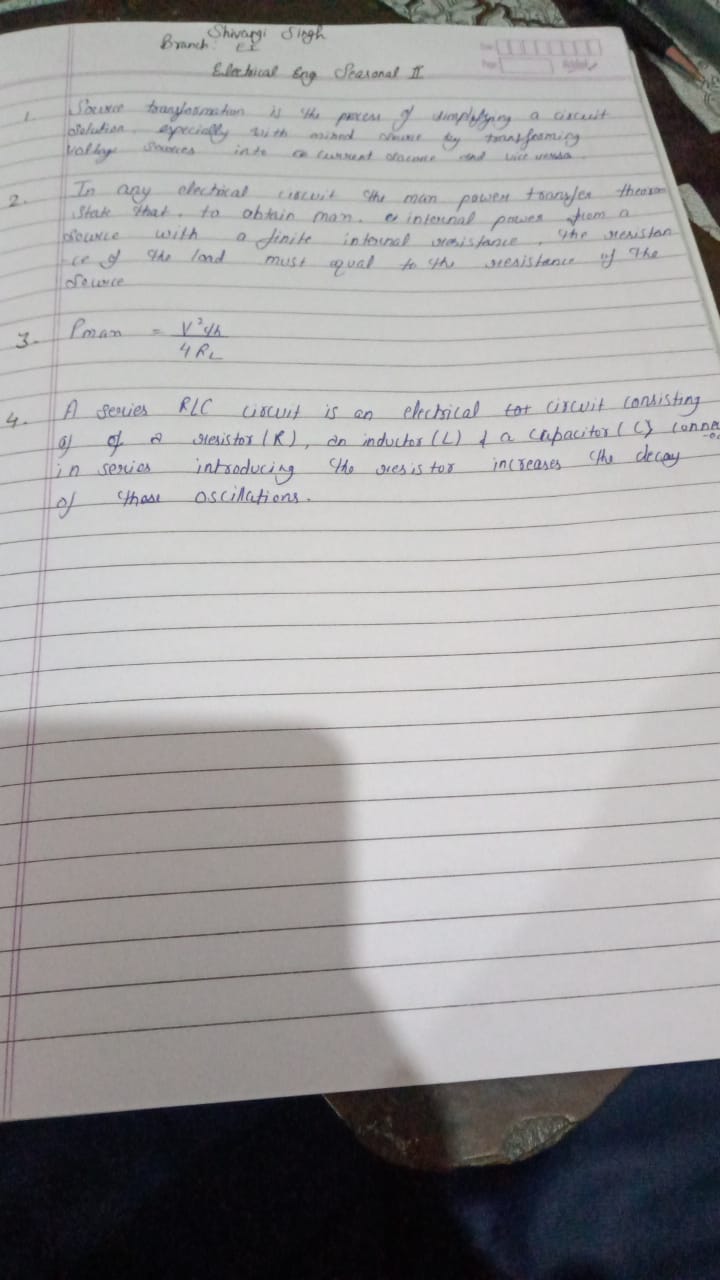 Shivangi Singh
Branch: EI
Electrical Eng Seasonal II
1. Source transformation is the process of simplifying a circuit
solution, especially with mixed source by transforming
voltage sources into a current source and vice versa.
2. In any electrical circuit the man power transfer theorem
state that, to obtain man. internal power from a
source with a finite internal resistance, the resistan
ce of the load must equal to the resistance of the
Source
3. Pman = V²th
4 RL
4. A series RLC circuit is an electrical circuit consisting
of of a resistor (R), an inductor (L) & a capacitor (C) conne
in series introducing the resistor increases the decay
of those oscillations.